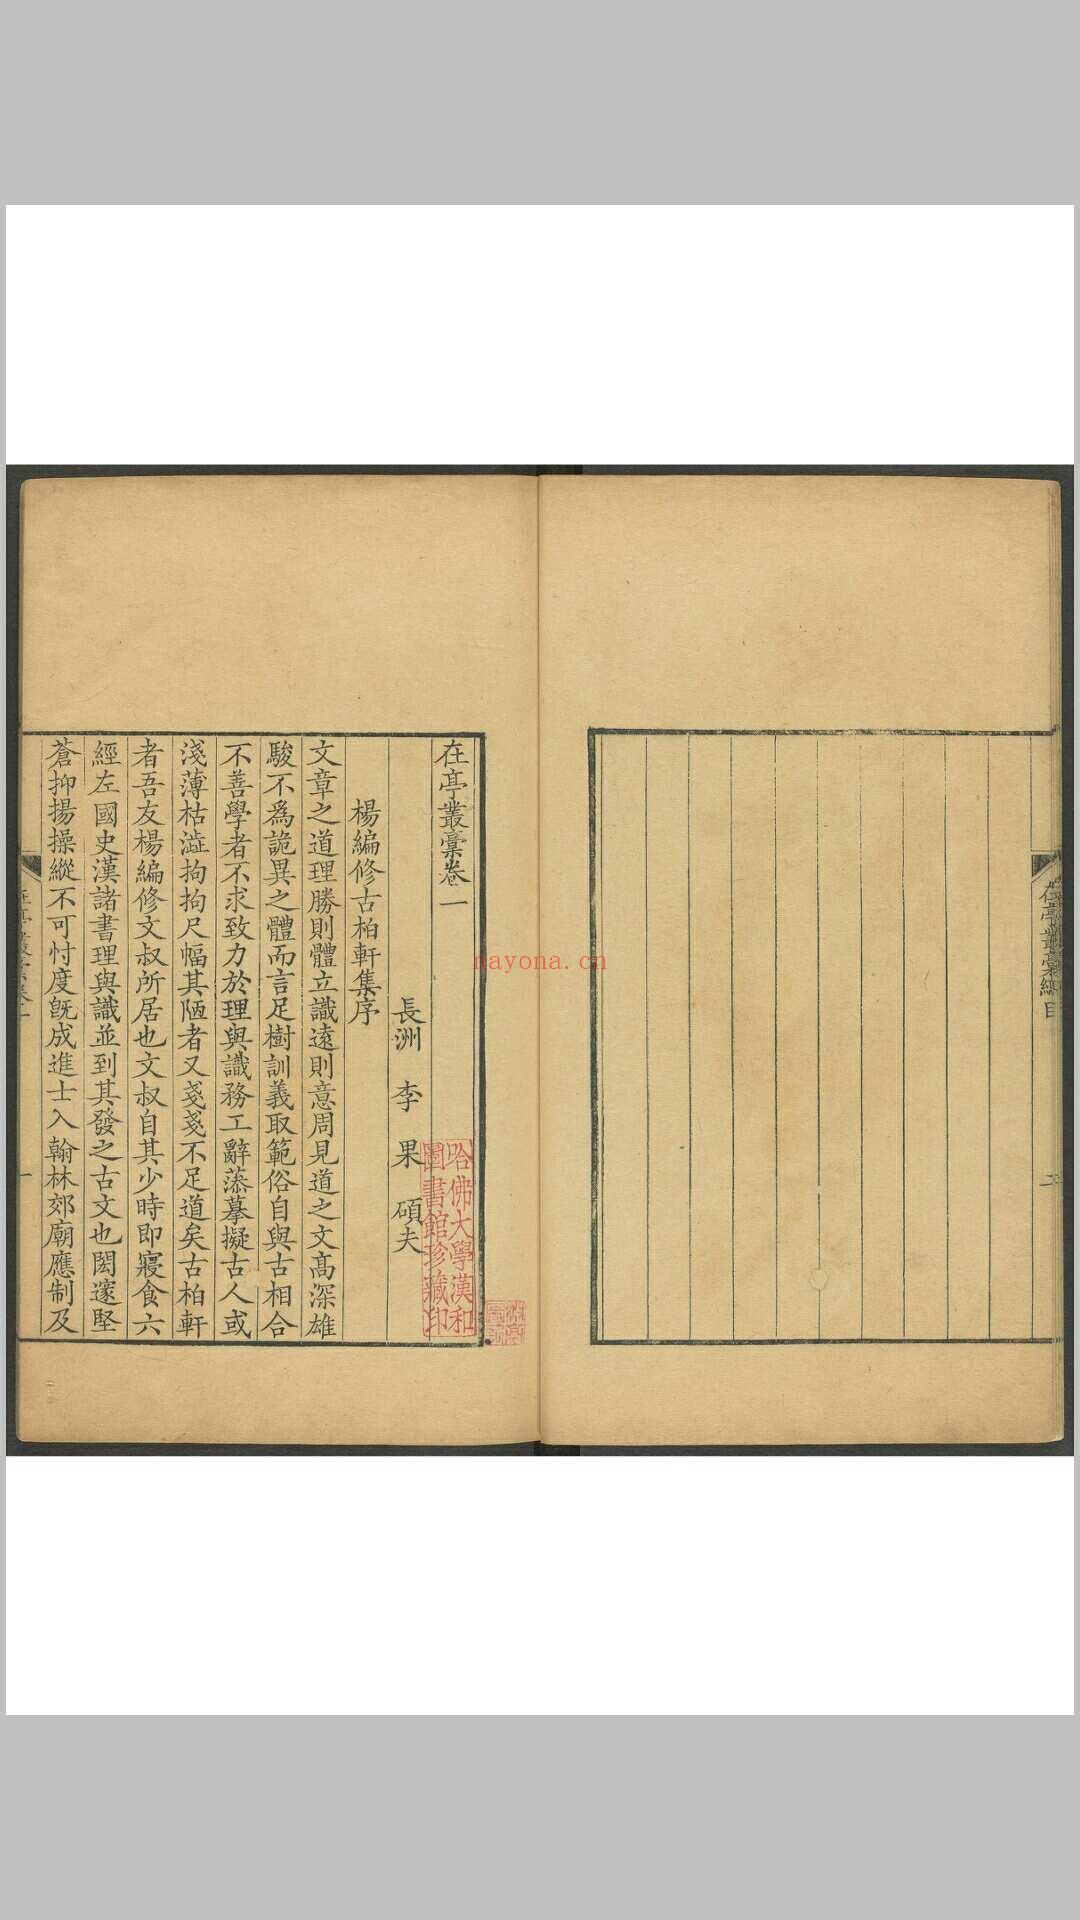 在亭叢稾總目
在亭叢稾卷一
長洲 李 果 碩夫
楊編修古柏軒集序
文章之道理勝則體立識遠則意周見道之文高深雄
駿不爲詭異之體而言足樹訓義取範俗自與古相合
不善學者不求致力於理與識務工辭藻摹擬古人或
淺薄枯澁拘拘尺幅其陋者又戔戔不足道矣古柏軒
者吾友楊編修文叔所居也文叔自其少時即寢食六
經左國史漢諸書理與識並到其發之古文也閎邃堅
蒼抑揚操縱不可忖度旣成進士入翰林郊廟應制及
在亭叢稾卷一
一
哈佛大學漢和
圖書館珍藏印
nayona.cn